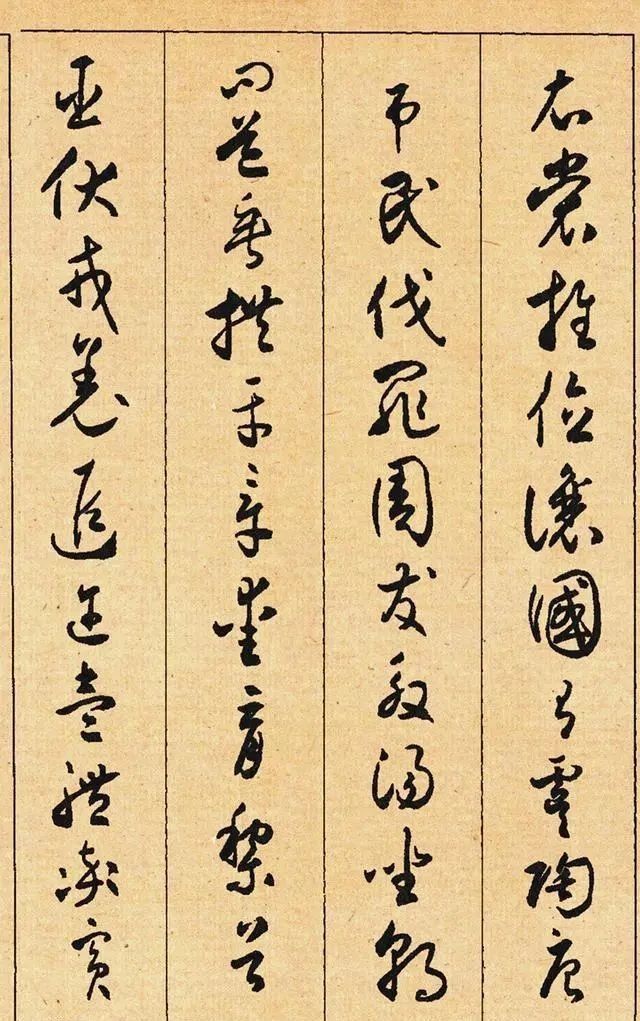 衣裳推位讓國有虞陶唐
吊民伐罪周發殷湯坐朝
問道垂拱平章愛育黎首
臣伏戎羌遐迩壹體率賓